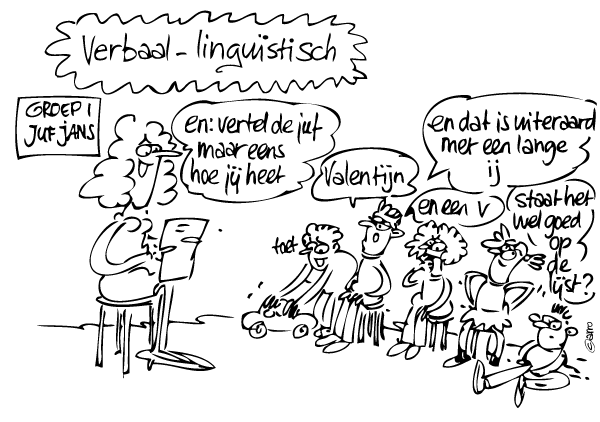 Verbaal-linguïstisch
GROEP 1
JUF JANS
en: vertel de juf
maar eens
hoe jij heet
Valentijn
en een v
en dat is uiteraard
met een lange
ij
staat het
wel goed
op
de
lijst?
toet